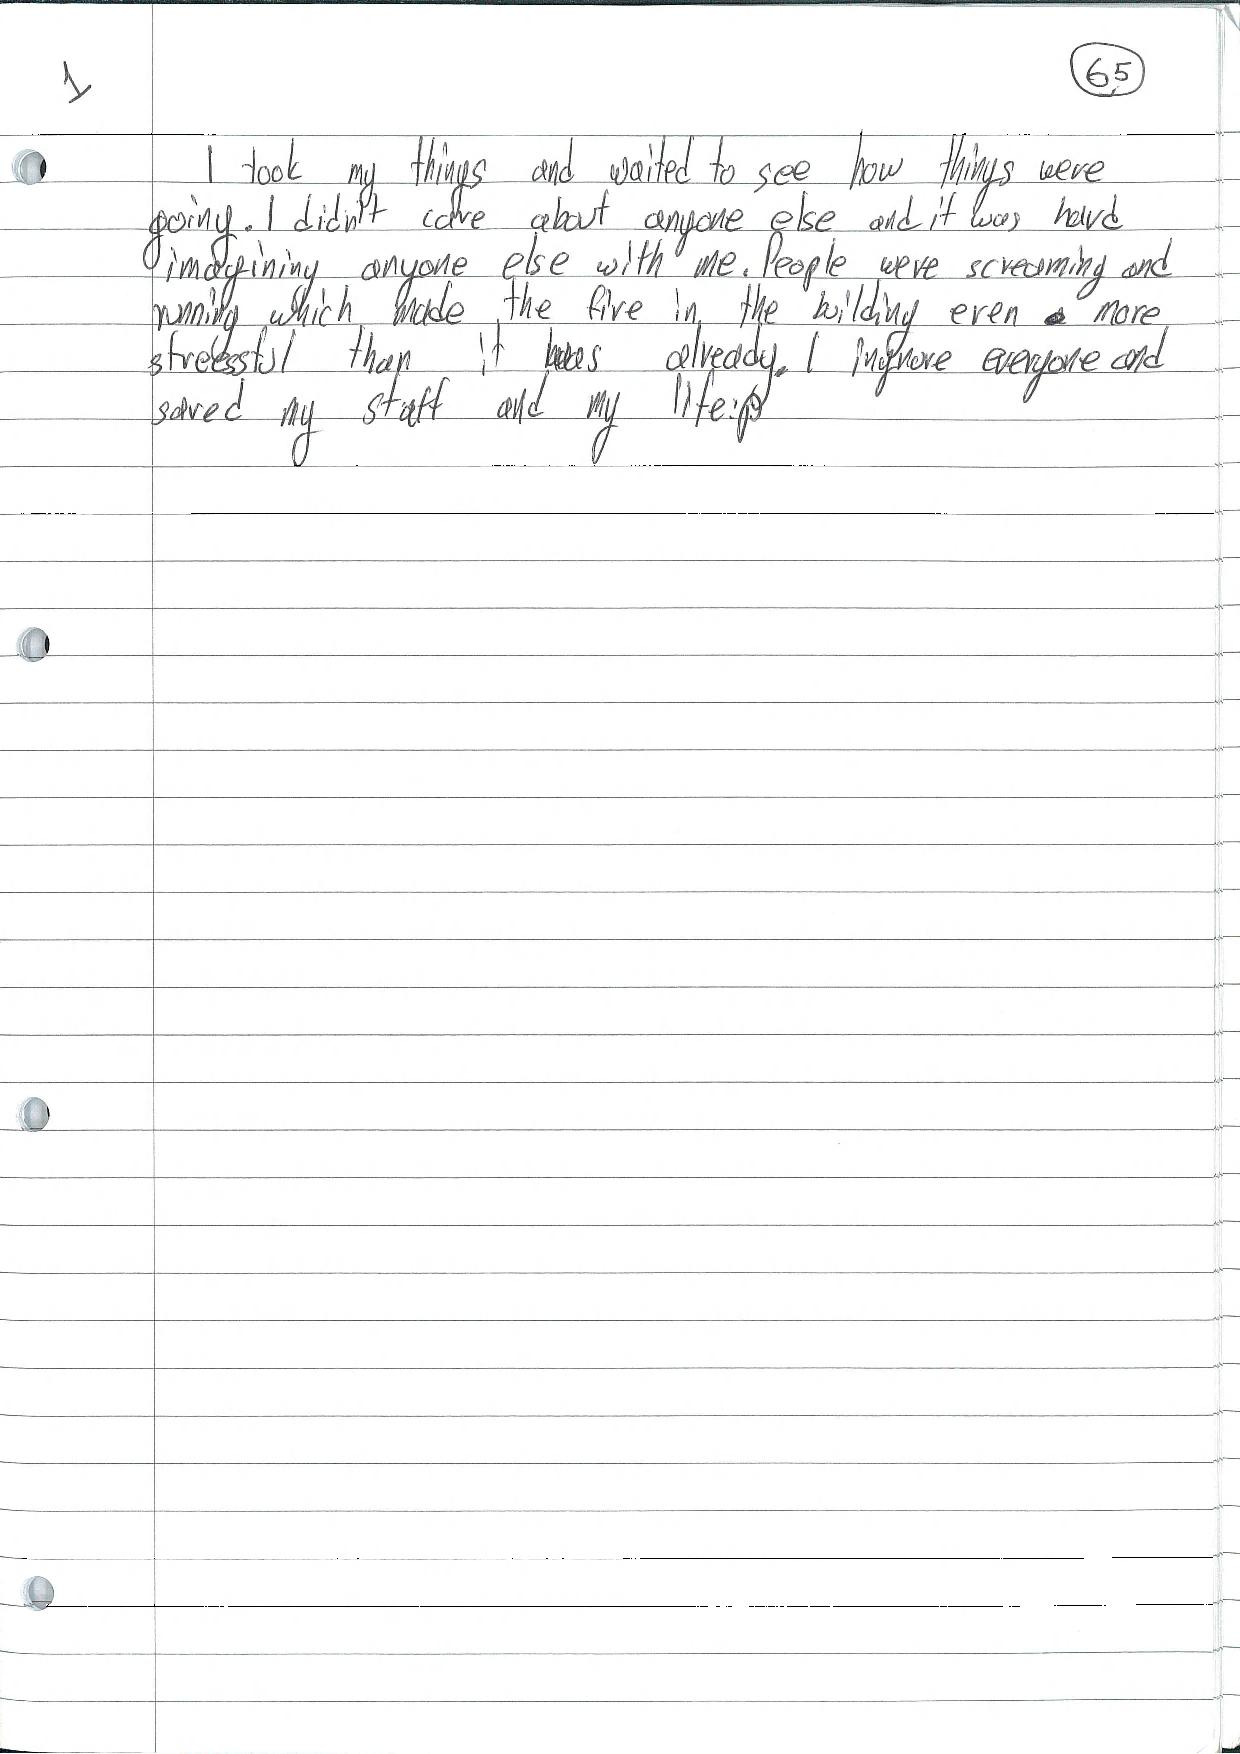 1
65
I took my things and waited to see how things were
going. I didn't care about anyone else and it was hard
imagining anyone else with me. People were screaming and
running which made the fire in the building even more
stressful than it was already. I ingnore everyone and
saved my staff and my life.